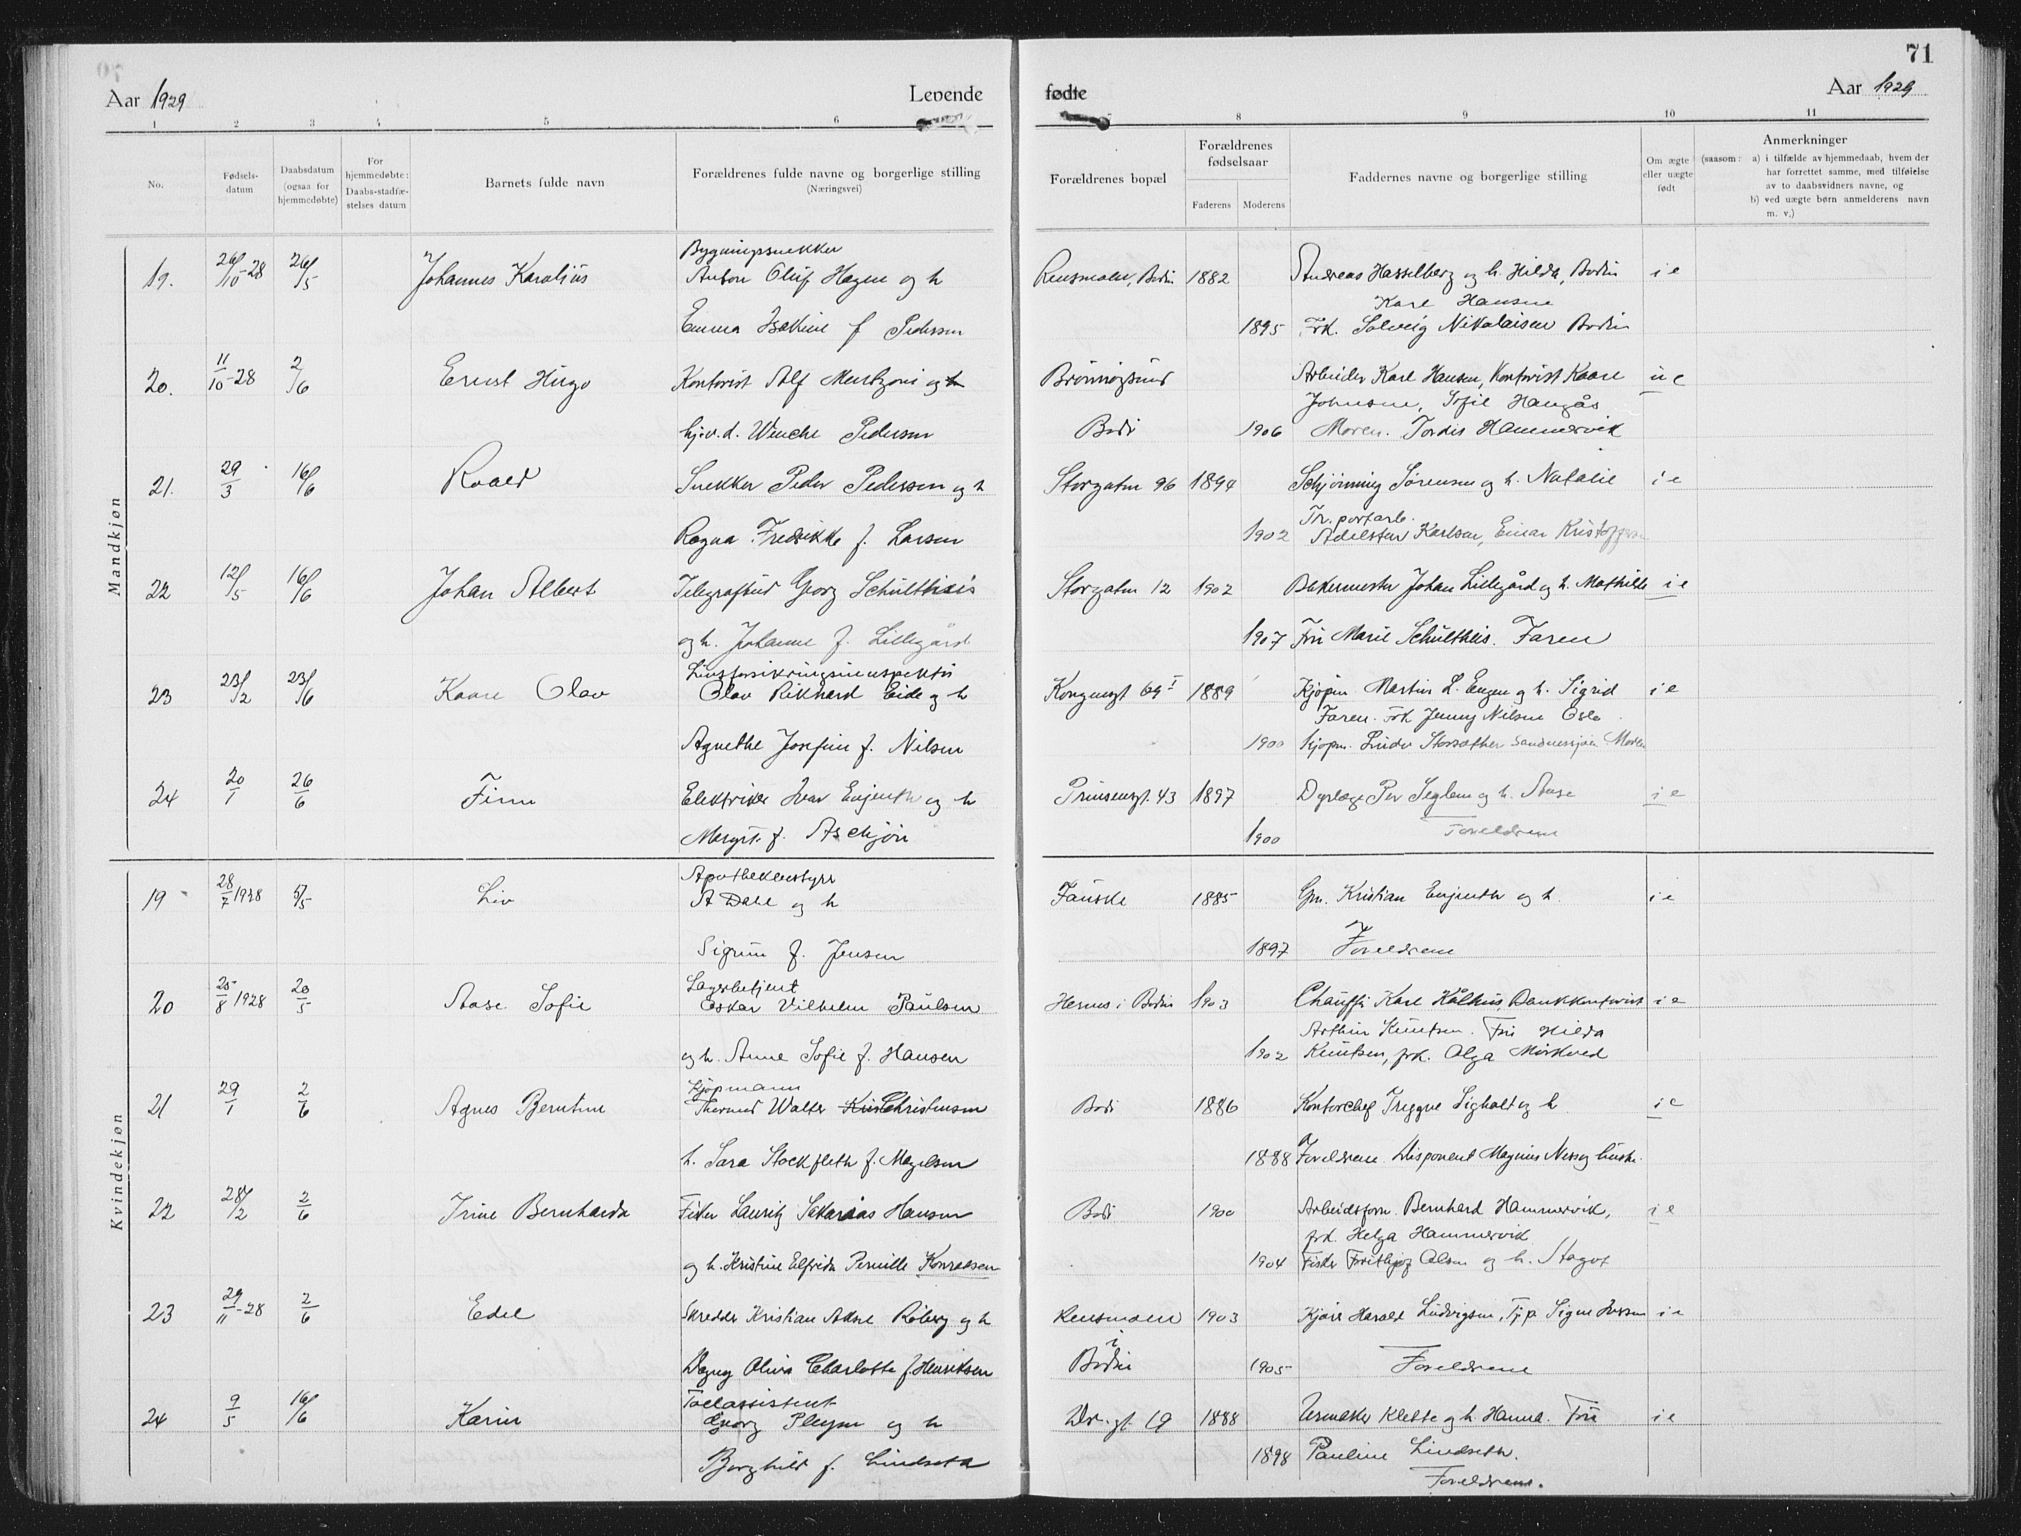 71
Aar 1929
Levende
fødte
Aar 1929
1 2 3 4 5 6 7 8 9 10 11
No.
Fødsels-
datum
Daabsdatum
(ogsaa for
hjemmedøbte)
For
hjemmedøbte:
Daabs-stadfæ-
stelses datum
Barnets fulde navn
Forældrenes fulde navne og borgerlige stilling
(Næringsvei)
Forældrenes bopæl
Forældrenes
fødselsaar
Faderens
Moderens
Faddernes navne og borgerlige stilling
Om ægte
eller uægte
født
Anmerkninger
(saasom: a) i tilfælde av hjemmedaab, hvem der
har forrettet samme, med tilføielse
av to daabsvidners navne, og
b) ved uægte børn anmelderens navn
m. v.)
Mandkjøn
Bygningssnekker
19. 26/10-28 26/5 Johannes Karolius Anton Oluf Hagen og h Rensmoen, Bodin 1882 Andreas Hasselberg og h. Hilda, Bodin i e
Karl Hansen
Emma Isakine f Pedersen 1895 Frk. Solveig Nikolaisen Bodin
20. 11/10-28 2/6 Ernst Hugo Kontorist Alf Mentzoni og h Brønnøysund Arbeider Karl Hansen, Kontorist Kaare u e
Johnsen, Sofie Haugås
hjv.d. Wenche Pedersen Bodø 1906 Moren. Tordis Hammervik
21. 29/3 16/6 Roald Snekker Peder Pedersen og h Storgaten 96 1894 Schjønning Sørensen og h. Natalie i e
Tr.portarb.
Ragna Fredrikke f. Larsen 1902 Adelsten Karlsen, Einar Kristoffersen
22 12/5 16/6 Johan Albert Telegrafbud Georg Schultheis Storgaten 12 1902 Bakermester Johan Lillegård og h. Mathilde i e
og h. Johanne f. Lillegård 1907 Fru Marie Schultheis. Faren
Livsforsikringsinspektør
23 23/2 23/6 Kaare Olav Olav Rikhard Eide og h Kongensgt 69 I 1889 Kjøpm Martin L. Engen og h. Sigrid i e
Faren. Frk Jenny Nilsen Oslo
Agnethe Josefine f. Nilsen 1900 Kjøpm. Storsæther Sandnessjøen Moren
24 20/1 26/6 Finn Elektriker Ivar Evjenth og h Prinsensgt. 43 1897 Dyrlæge Per Seglem og h. Aase i e
Margit f. Aschjön 1900 Foreldrene
Kvindekjøn
Apothekerbestyrer
19 28/7 1928 5/5 Liv A Dahl og h Fauske 1885 Gm. Kristian Evjenth og h. i e
Sigrun f. Jensen 1897 Foreldrene
Lagerbetjent
20 25/8 1928 20/5 Aase Sofie Oskar Vilhelm Paulsen Hernes i Bodin 1903 Chauffør Karl Kålhus, Bankkontorist i e
Arthur Knutsen. Fru Hilda
og h. Anne Sofie f. Hansen 1902 Knutsen, frk. Olga Mørkved
Kjøpmann
21 29/1 2/6 Agnes Berntine Thormod Walter Christensen Bodø 1886 Kontorchef Tryggve Sigholt og h i e
h. Sara Stockfleth f. Magelsen 1888 Foreldrene Disponent Magnus Nessøy
22 28/2 2/6 Irine Bernharda Fisker Lauritz Sakarias Hansen Bodø 1900 Arbeidsform. Bernhard Hammervik, i e
frk. Helga Hammervik
og h. Kristine Elfrida Pernille Konradsen 1904 Fisker Fritjof Olsen og h. Dagot
23 29/11-28 2/6 Edel Skredder Kristian Adne Röberg og h Rensmoen 1903 Kjøre Harald Ludvigsen, Tj.p. Signe i e
i
Dagny Oliva Charlotte f. Henriksen Bodin 1905 Foreldrene
Tollassistent
24 9/5 16/6 Karin Georg Pleym og h Dr.gt 19 1888 Urmaker Klette og h. Hanna. Fru i e
Borghild f. Lindseth 1898 Pauline Lindseth.
Foreldrene.